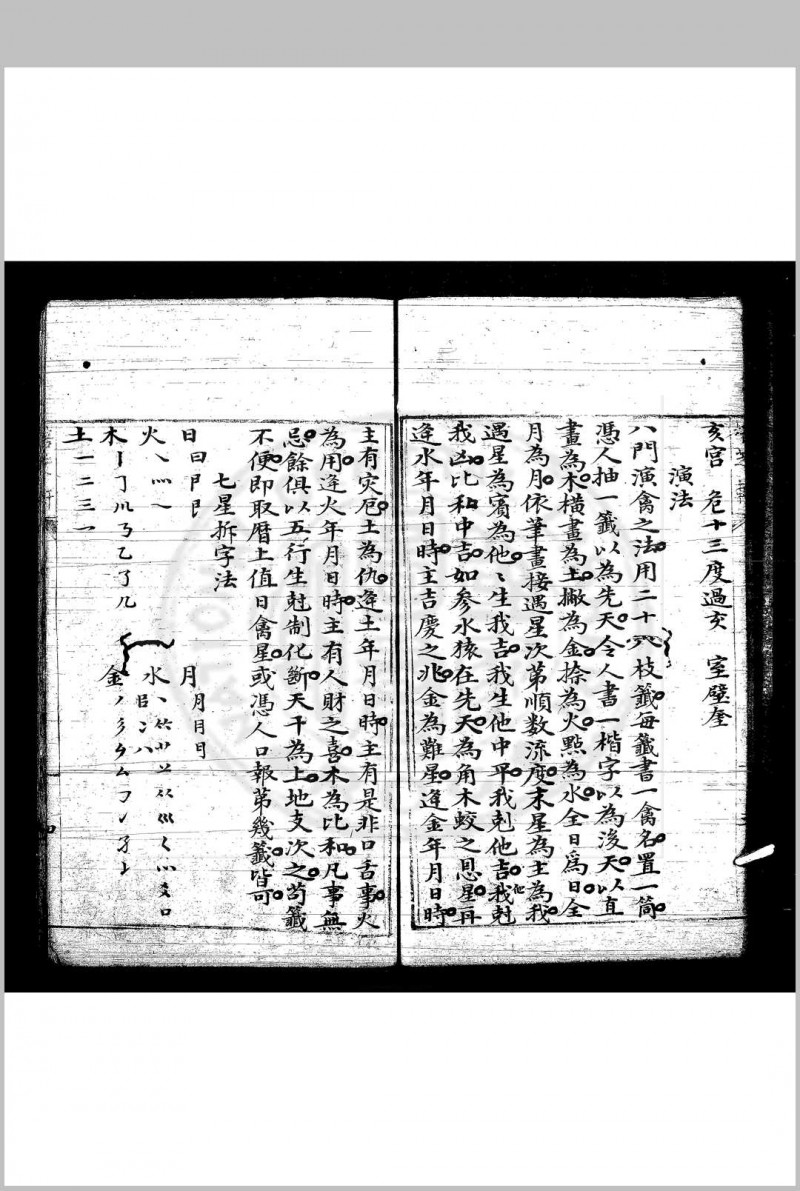 亥宮　危十三度過亥　室壁奎
演法
八門演禽之法用二十八枝籤每籤書一禽名置一筒
憑人抽一籤以為先天令人書一楷字以為後天以直
畫為木橫畫為土撇為金捺為火點為水全日為日全
月為月依筆畫接遇星次第順數流度末星為主為我
遇星為賓為他〻生我吉我生他中平我剋他吉他我尅
我凶比和中吉如參水猿在先天為角木蛟之恩星再
逢水年月日時主吉慶之兆金為難星逢金年月日時
主有灾厄土為仇逢土年月日時主有是非口舌事火
為用逢火年月日時主有人財之喜木為比和凡事無
忌餘俱以五行生尅制化斷天干為上地支次之苟籤
不便即取曆上值日禽星或憑人口報第幾籤皆可
七星拆字法
日曰尸𠂤　月月冃
火丶灬乀　水丶
木丨　乙了几　金丿彡
土一二三